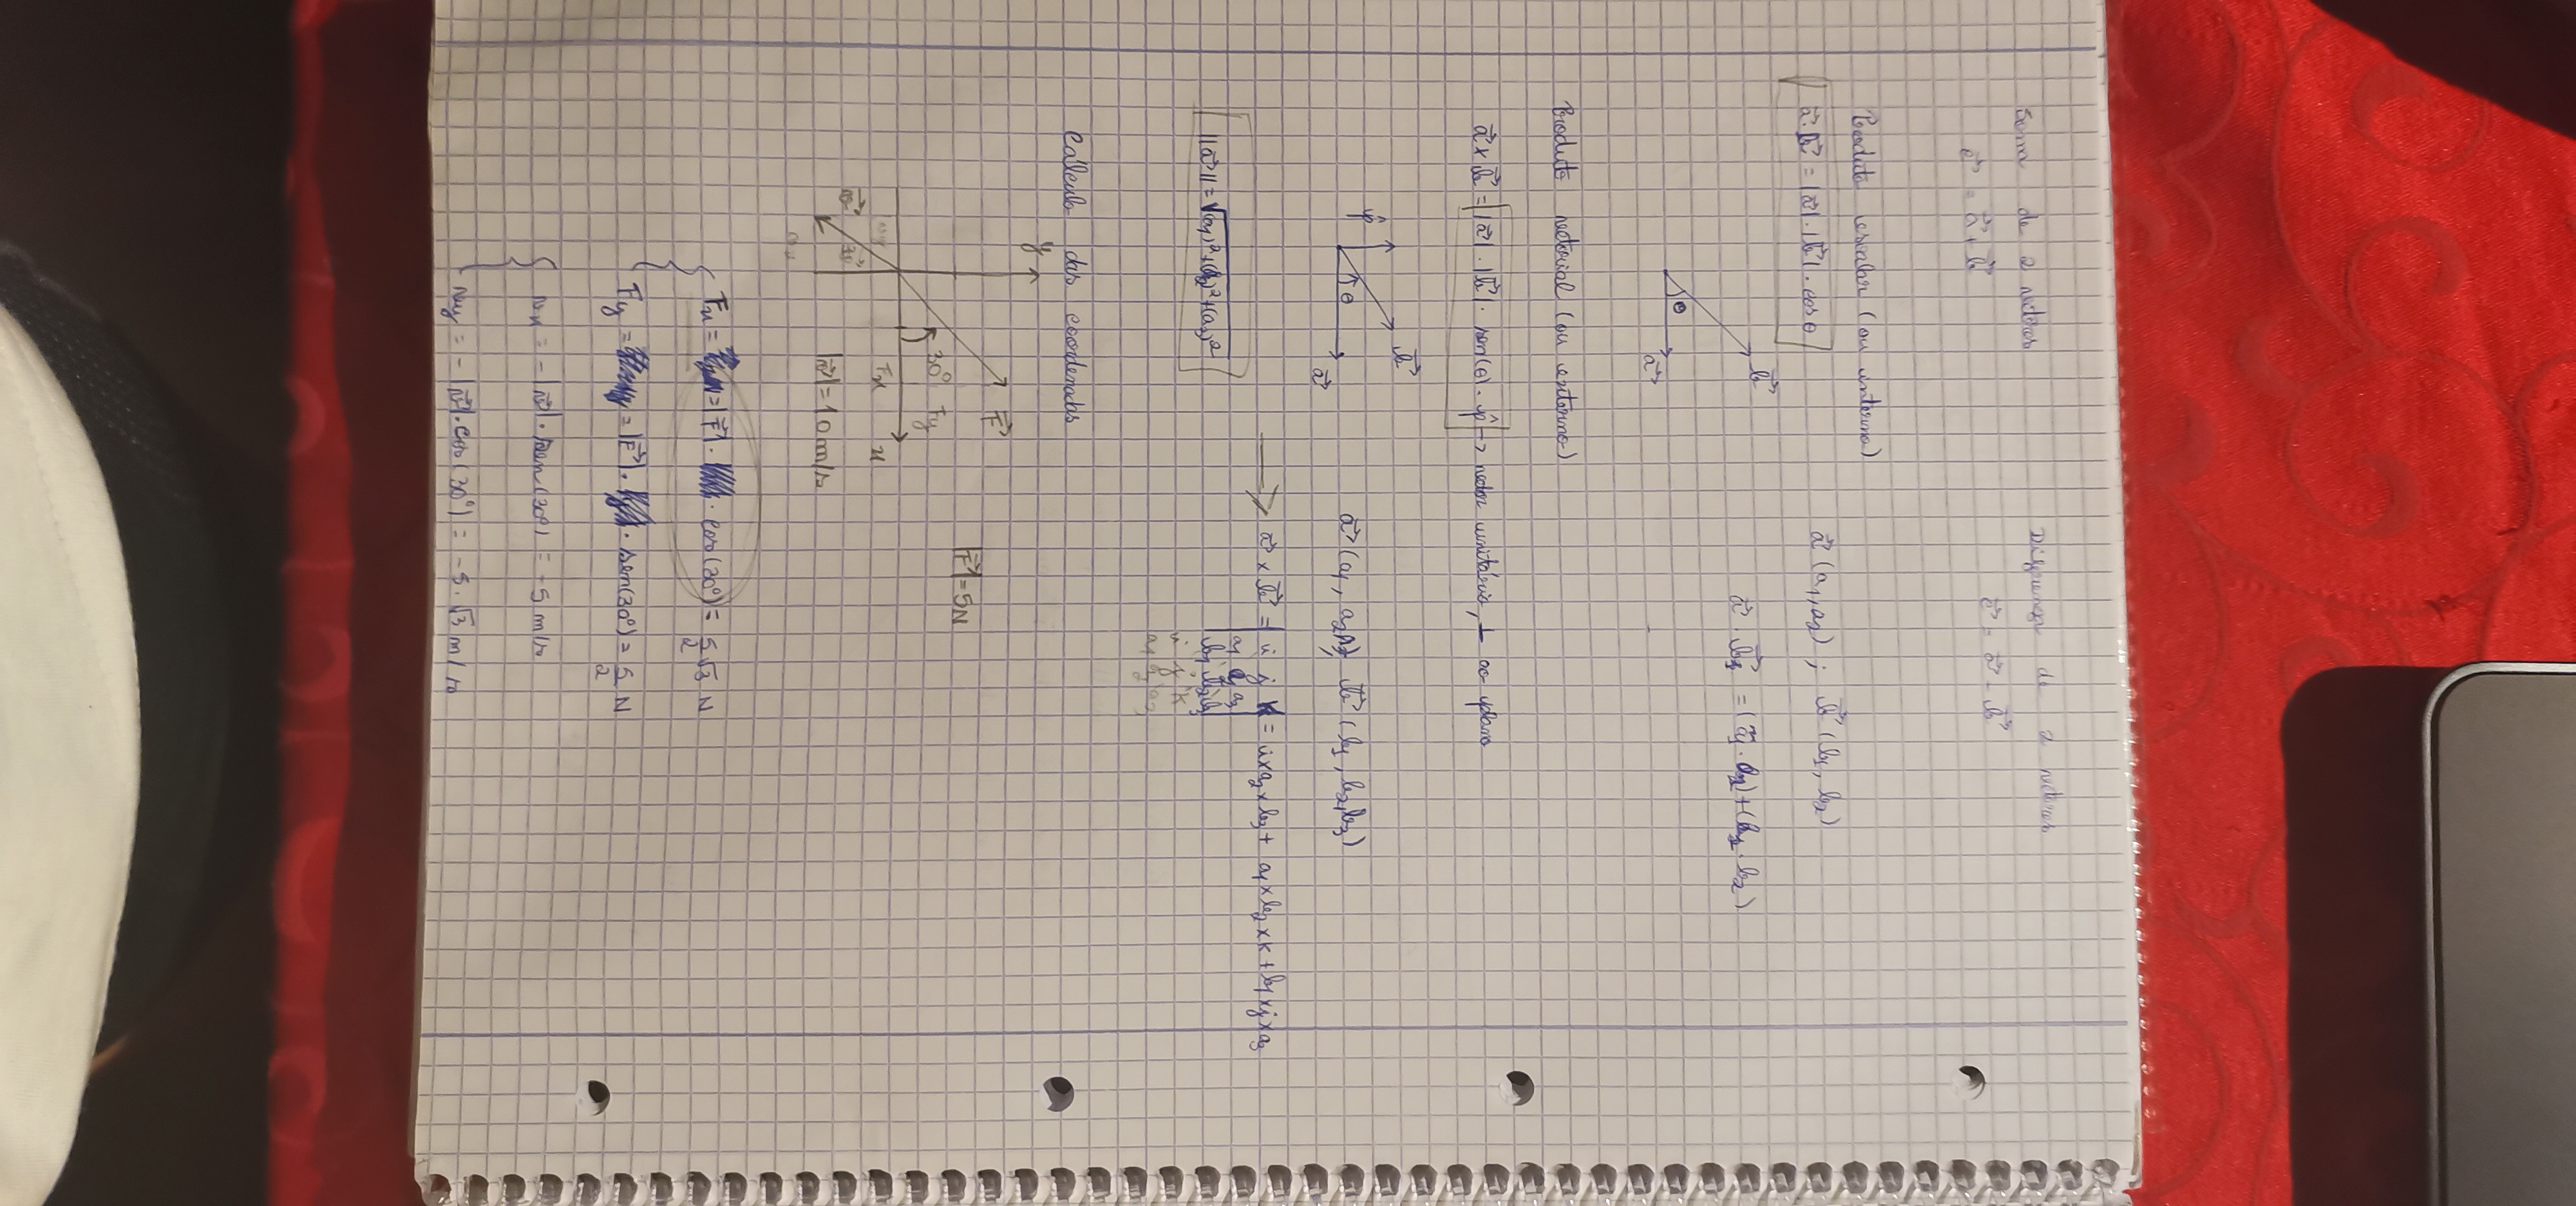 Soma de 2 vetores
Diferença de 2 vetores
c⃗ = a⃗ + b⃗
c⃗ = a⃗ - b⃗
Produto escalar (ou interno)
a⃗ · b⃗ = |a⃗| · |b⃗| · cos θ
a⃗ (a₁, a₂) ; b⃗ (b₁, b₂)
b⃗
θ
a⃗
Produto vetorial (ou externo)
a⃗ × b⃗ = |a⃗| · |b⃗| · sen(θ) · p̂ → vetor unitário, ⊥ ao plano
p̂
b⃗
θ
a⃗
b⃗ (b₁, b₂, b₃)
→ a⃗ × b⃗ = | i j k | = i×a₂×b₃ + a₁×b₂×k + b₁×j×a₃
a₁ a₂ a₃
b₁ b₂ b₃
i j k
a₁ a₂ a₃
||a⃗|| = √(a₁)²+(a₂)²+(a₃)²
Calculo das coordenadas
y
F⃗
|F⃗| = 5N
30°
Fy
Fx
x
30°
|v⃗| = 10 m/s
Fx = |F⃗| · cos(30°) = 5/2 √3 N
Fy = |F⃗| · sen(30°) = 5/2 N
vx = - |v⃗| · sen(30°) = -5 m/s
vy = - |v⃗| · cos(30°) = -5 · √3 m/s